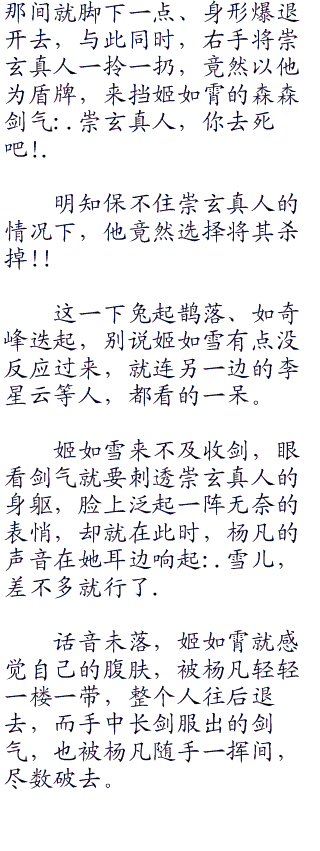 那间就脚下一点、身形爆退
开去，与此同时，右手将崇
玄真人一拎一扔，竟然以他
为盾牌，来挡姬如霄的森森
剑气:.崇玄真人，你去死
吧!.
明知保不住崇玄真人的
情况下，他竟然选择将其杀
掉!!
这一下兔起鹊落、如奇
峰迭起，别说姬如雪有点没
反应过来，就连另一边的李
星云等人，都看的一呆。
姬如雪来不及收剑，眼
看剑气就要刺透崇玄真人的
身躯，脸上泛起一阵无奈的
表悄，却就在此时，杨凡的
声音在她耳边响起:.雪儿，
差不多就行了.
话音未落，姬如霄就感
觉自己的腹肤，被杨凡轻轻
一楼一带，整个人往后退
去，而手中长剑服出的剑
气，也被杨凡随手一挥间，
尽数破去。